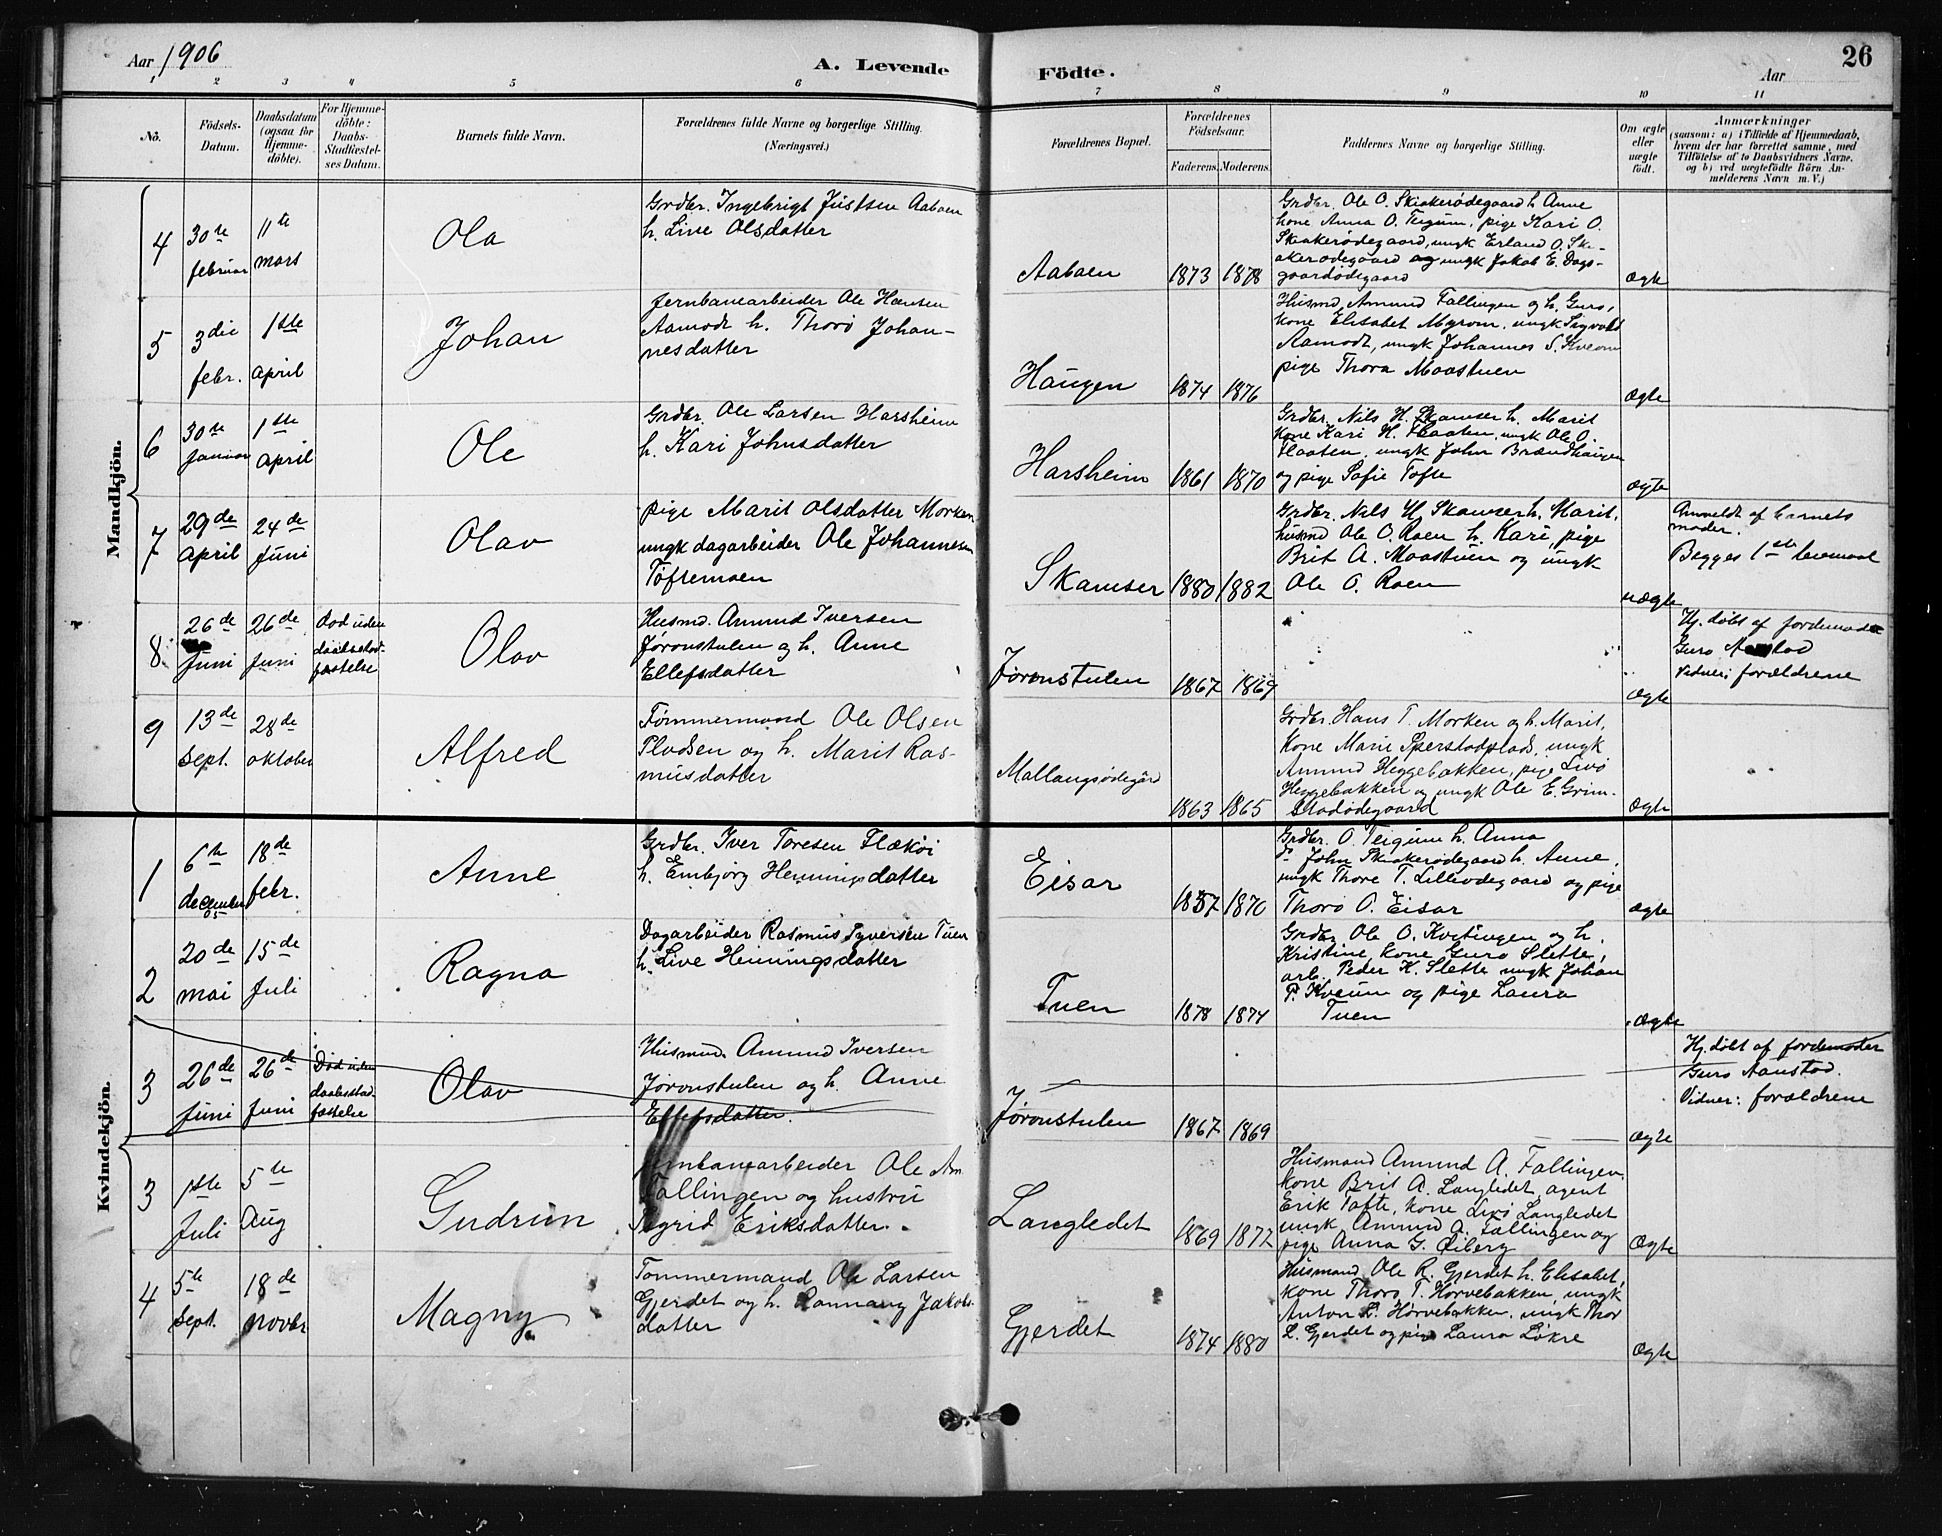 Aar 1906
A. Levende
Födte.
Aar
26
1 2 3 4 5 6 7 8 9 10 11
No.
Födsels-
Datum.
Daabsdatum
(ogsaa for
Hjemme-
döbte).
For Hjemme-
döbte:
Daabs-
Stadfæstel-
ses Datum.
Barnets fulde Navn.
Forældrenes fulde Navne og borgerlige Stilling.
(Næringsvei.)
Forældrenes Bopæl.
Forældrenes
Födselsaar.
Faderens. Moderens.
Faddernes Navne og borgerlige Stilling.
Om ægte
eller
uægte
födt.
Anmærkninger
(saasom: a) i Tilfælde af Hjemmedaab,
hvem der har forrettet samme, med
Tilföielse af to Daabsvidners Navne,
og b) ved uægtefödte Börn An-
melderens Navn m. V.)
Mandkjön.
4
30te
februar
11te
mars
Ola
Grdbr. Ingebrigt Justsen Aaboen
h. Live Olsdatter
Aaboen
1873 1878
Grdbr. Ole O. Skiakerødegaard h. Anne
kone Anna O. Teigum, pige Kari O.
Skiakerødegaard, ungk Erland O. Ski-
akerødegaard og ungk Jakob E. Dags-
gaardødegaard
ægte
5
3die
febr.
1ste
april
Johan
Jernbanearbeider Ole Hansen
Aamodt h. Thorø Johan-
nesdatter
Haugen
1874 1876
Husmd. Amund Fallingen og h. Guro,
kone Elisabet Myrom, ungk Sigvald
Aamodt, ungk Johannes S. Kveom
pige Thora Moastuen
ægte
6
30te
Januar
1ste
april
Ole
Grdbr. Ole Larsen Harsheim
h. Kari Johnsdatter
Harsheim
1861 1870
Grdbr. Nils H. Skamser h. Marit
kone Kari H. Haaten, ungk Ole O.
Haaten, ungk John Brændhaugen
og pige Sofie Tofte
ægte
7
29de
april
24de
Juni
Olav
pige Marit Olsdatter Morken
ungk dagarbeider Ole Johannesen
Toftemoen
Skamser
1880 1882
Grdbr. Nils H. Skamser h. Marit,
husmd Ole O. Roen h. Kari, pige
Brit A. Moastuen og ungk
Ole O. Roen
uægte
Anmeldt af barnets
moder.
Begges 1ste leiermaal
8
26de
Juni
26de
Juni
død uden
daabsstad-
fæstelse
Olav
Husmd. Amund Iversen
Jøronstulen og h. Anne
Ellefsdatter
Jøronstulen
1867 1869
ægte
Hj. døbt af jordemoder
Guro Aanstad
Vidner: forældrene
9
13de
sept.
28de
oktober
Alfred
Tømmermand Ole Olsen
Pladsen og h. Marit Ras-
musdatter
Mallangsødegård
1863 1865
Grdbr. Hans T. Morken og h. Marit,
kone Marie Sperstadplads, ungk
Amund Heggebakken, pige Livø
Heggebakken og ungk Ole E. Grim-
stadødegaard
ægte
Kvindekjön.
1
6te
december
05
18de
febr.
Anne
Grdbr. Iver Toresen Flækøi
h. Embjørg Henningsdatter
Eisar
1857 1870
Grdbr. O. Teigum h. Anna
do John Skiakerødegaard h. Anne,
ungk Thore T. Lillerødegaard og pige
Thorø O. Eisar
ægte
2
20de
mai
15de
Juli
Ragna
Dagarbeider Rasmus Syversen Tuen
h. Live Henningsdatter
Tuen
1878 1874
Grdbr. Ole O. Kvitingen og h.
Kristine, kone Guro Slette,
arb. Peder K. Slette ungk Johan
P. Kveum og pige Laura
Tuen
ægte
3
26de
Juni
26de
Juni
Død uden
daabsstad-
fæstelse
Olav
Husmd. Amund Iversen
Jøronstulen og h. Anne
Ellefsdatter.
Jøronstulen
1867 1869
ægte
Hj. døbt af jordemoder
Guro Aanstad.
Vidner: forældrene
3
1ste
Juli
5te
Aug
Gudrun
Jernbanearbeider Ole Am.
Fallingen og hustru
Sigrid Eriksdatter.
Langledet
1869 1877
Husmand Amund A. Fallingen,
kone Brit A. Langledet, agent
Erik Tofte, kone Livø Langledet
ungk Amund A. Fallingen og
pige Anna G. Øiberg
Ægte
4
5te
Sept.
18de
novbr
Magny
Tømmermand Ole Larsen
Gjerdet og h. Rannaug Jakobs-
datter
Gjerdet
1874 1880
Husmand Ole R. Gjerdet h. Elisabet,
kone Thorø T. Hørvebakken, ungk
Anton L. Hørvebakken, ungk Thor
L. Gjerdet og pige Laura Løkre
Ægte